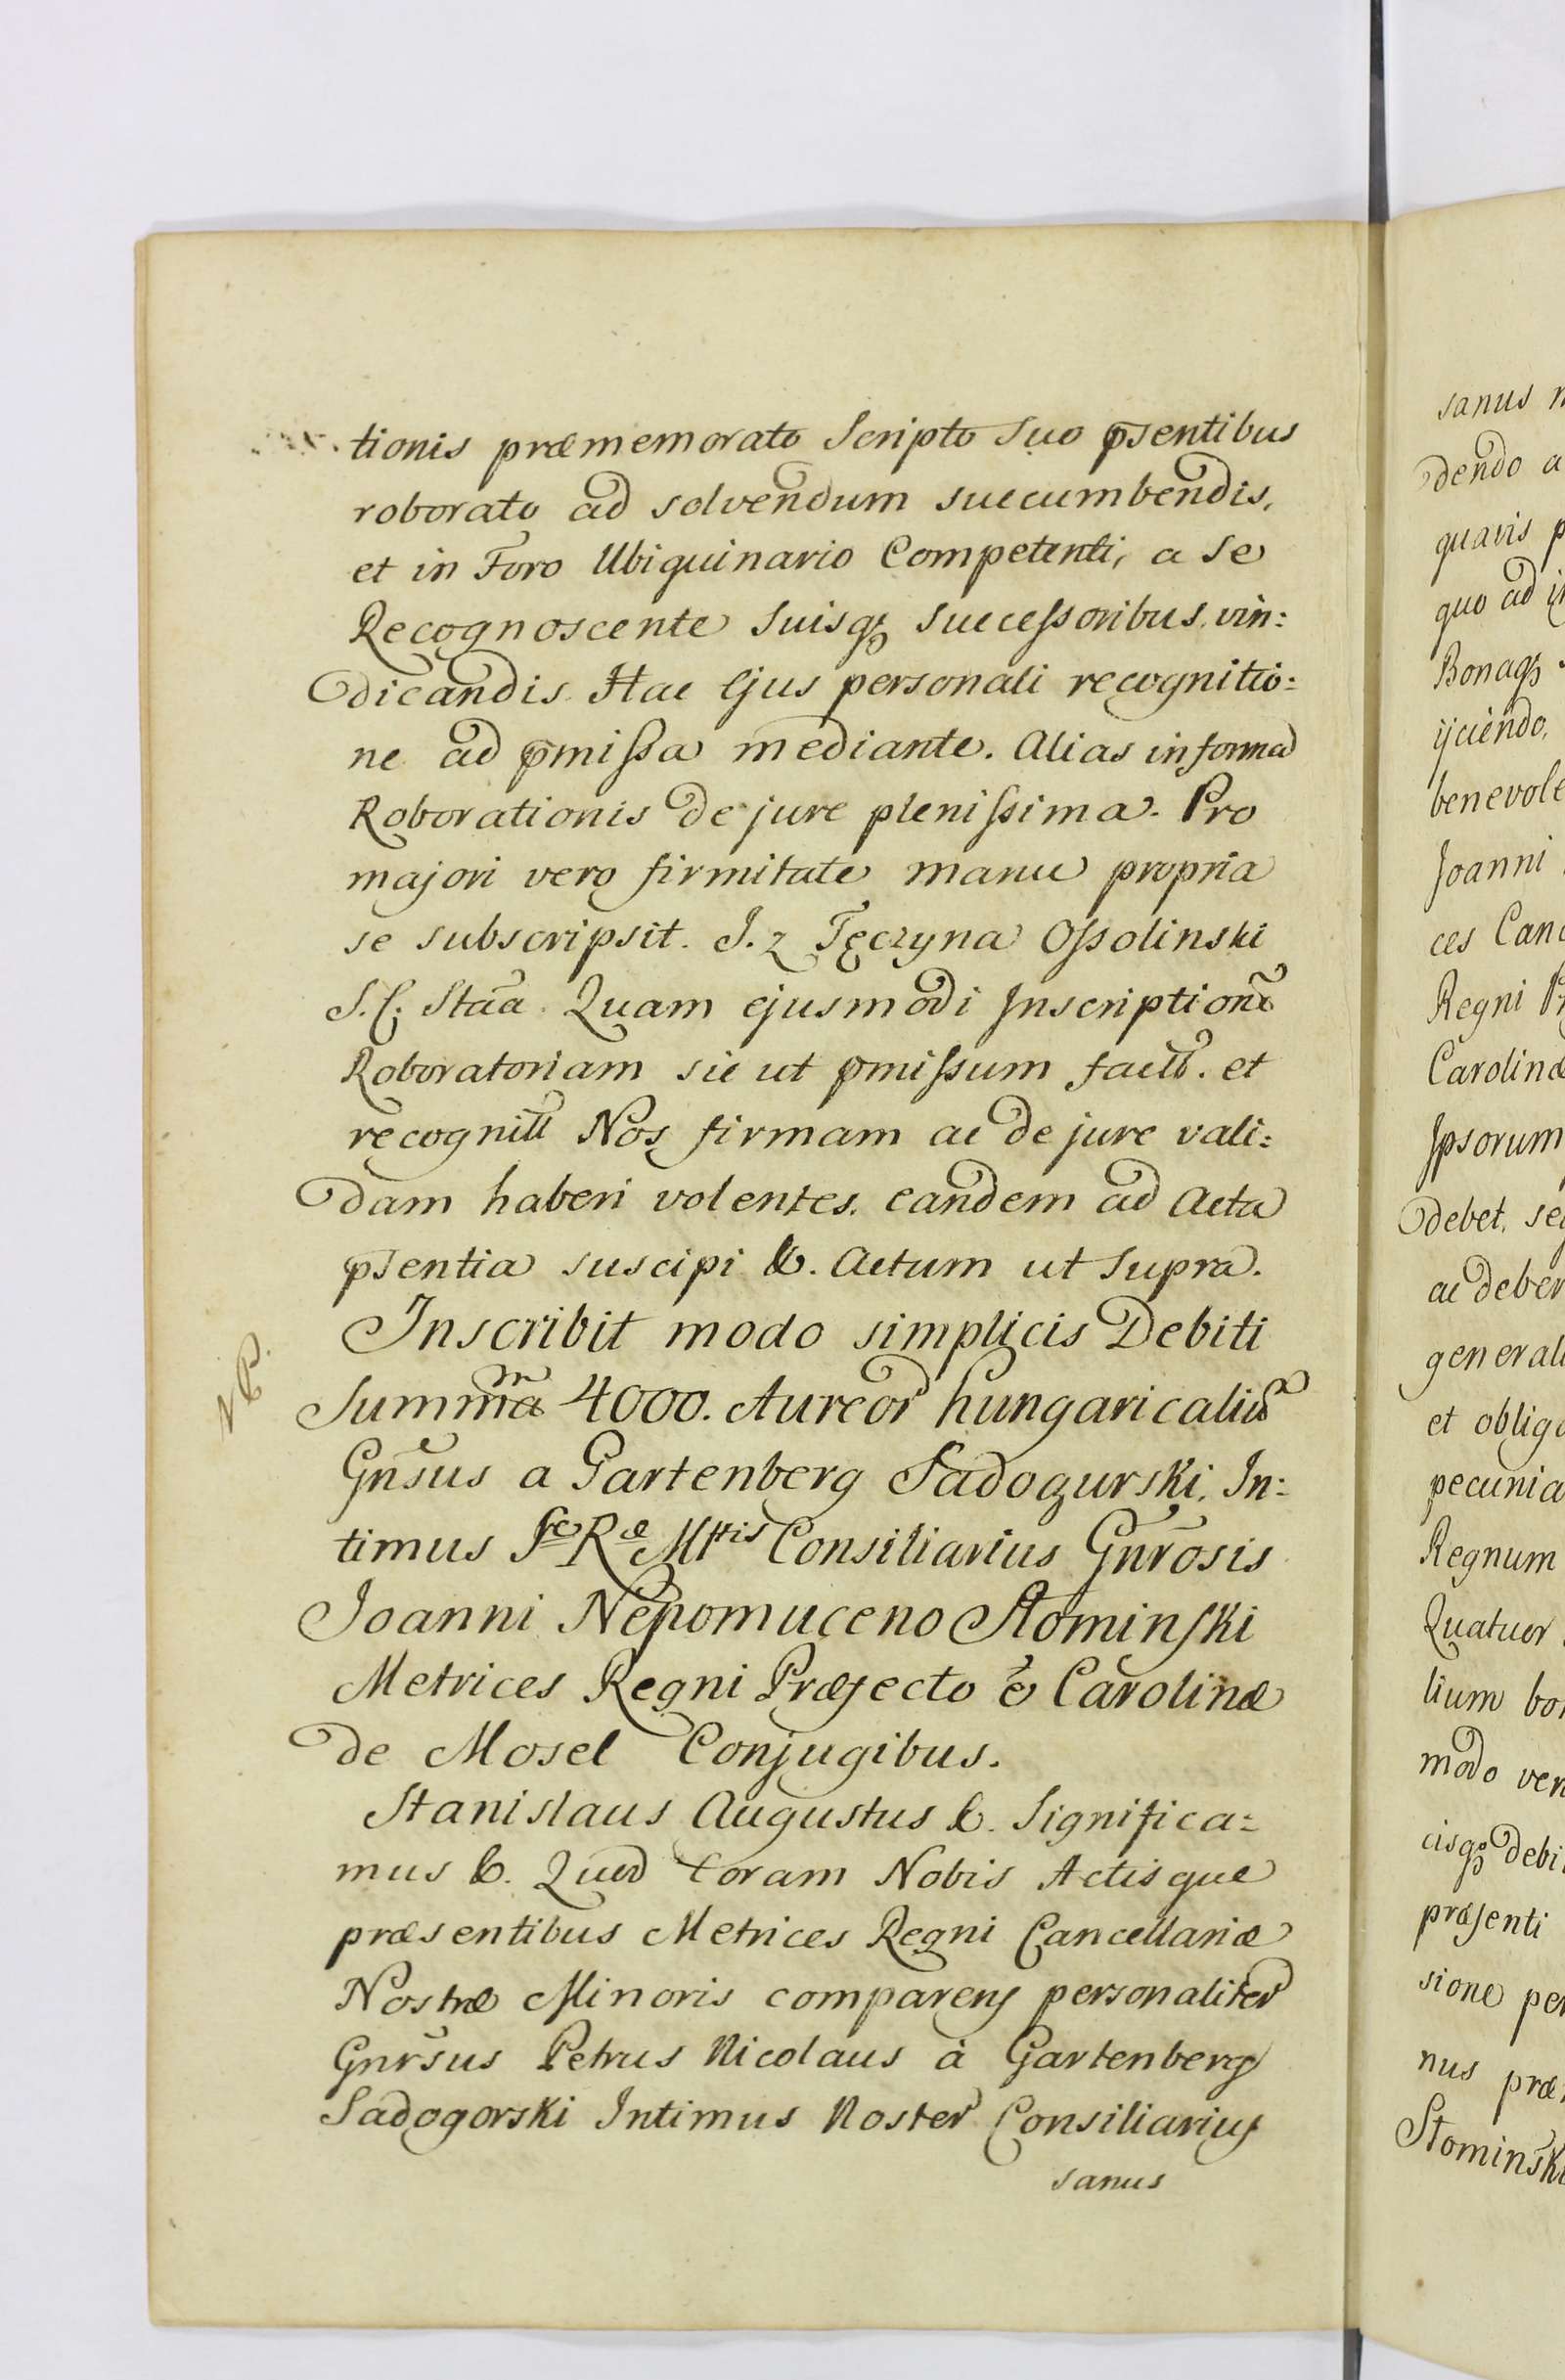 tionis præmemorato Scripto Suo p̄sentibus
roborato ad solvendum succumbendis,
et in Foro Ubiquinario Competenti, a Se
Recognoscente Suisqꝫ Successoribus vin:
dicandis. Hac Ejus personali recognitio:
ne ad p̄missa mediante. Alias in forma
Roborationis de jure plenissima. Pro
majori vero firmitate manu propria
se subscripsit. J. z Tęczyna Ossolinski
S. C. Staā. Quam ejusmodi Inscriptionē
Roboratoriam sic ut p̄missum fact̃. et
recognit̃ Nos firmam ac de jure vali:
dam haberi volentes, eandem ad Acta
p̄sentia suscipi &. Actum ut Supra.
N. P.
Inscribit modo simplicis Debiti
Summam 4000. Aureor̃ hungaricaliũ
Gnŝus a Gartenberg Sadogurski, In:
timus Sæ Ræ Mttis Consiliarius Gnr̃osis
Joanni Nepomuceno Słominski
Metrices Regni Præfecto & Carolinæ
de Mosel Conjugibus.
Stanislaus Augustus &. Significa:
mus &. Quod Coram Nobis Actisque
præsentibus Metrices Regni Cancellariæ
Nostræ Minoris comparens personaliter
Gnrŝus Petrus Nicolaus à Gartenberg
Sadogorski Intimus Noster Consiliarius
sanus
sanus
dendo a
quavis p
quo ad i
Bonaqꝫ
ijciendo,
benevole
Joanni
ces Canc
Regni Pr
Carolinæ
Ipsorum
debet, se
ac deber
general
et obliga
pecunia
Regnum
Quatuor
lium bo
modo ver
cisqꝫ debi
præsenti
sione per
nus præ
Słominski